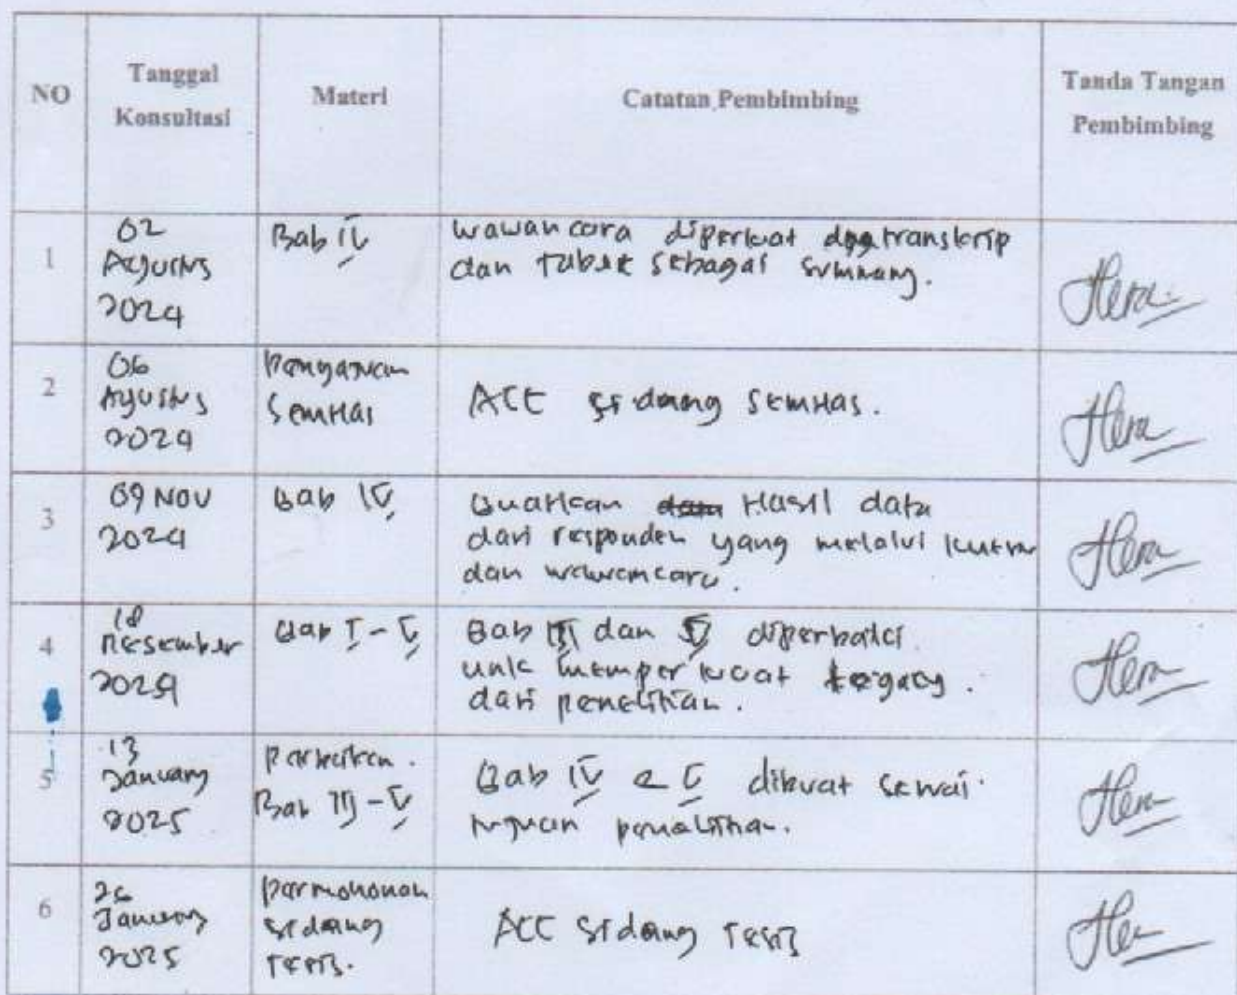 NO
Tanggal
Konsultasi
Materi
Catatan Pembimbing
Tanda Tangan
Pembimbing
1
02
Agustus
2024
Bab IV
wawancara diperkuat dgn transkrip
dan tabek sebagai
Hera
2
06
Agustus
2024
Pengajuan
SemHas
ACC sidang SemHas.
Hera
3
09 NOV
2024
Bab IV
Buatkan Hasil data
dari responden yang melalui
dan wawancara.
Hera
4
18
Desember
2024
Bab I - V
Bab III dan IV diperbaiki
untk memperkuat
dari penelitian.
Hera
5
13
Januari
2025
Perbaikan.
Bab III - V
Bab IV & V dibuat sesuai
tujuan penelitian.
Hera
6
Januari
2025
Permohonan
sidang
Tesis.
ACC sidang Tesis
Hera